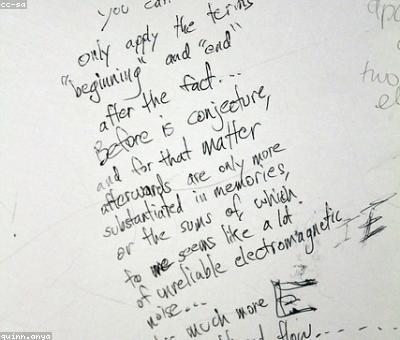 cc-sa
you can
only apply the terms
"beginning" and "end"
after the fact...
Before is conjecture,
and for that matter
afterwards are only more
substantiated in memories,
or the sums of which.
to me seems like a lot
of unreliable electromagnetic
noise...
much more
flow......
two
quinn.anya